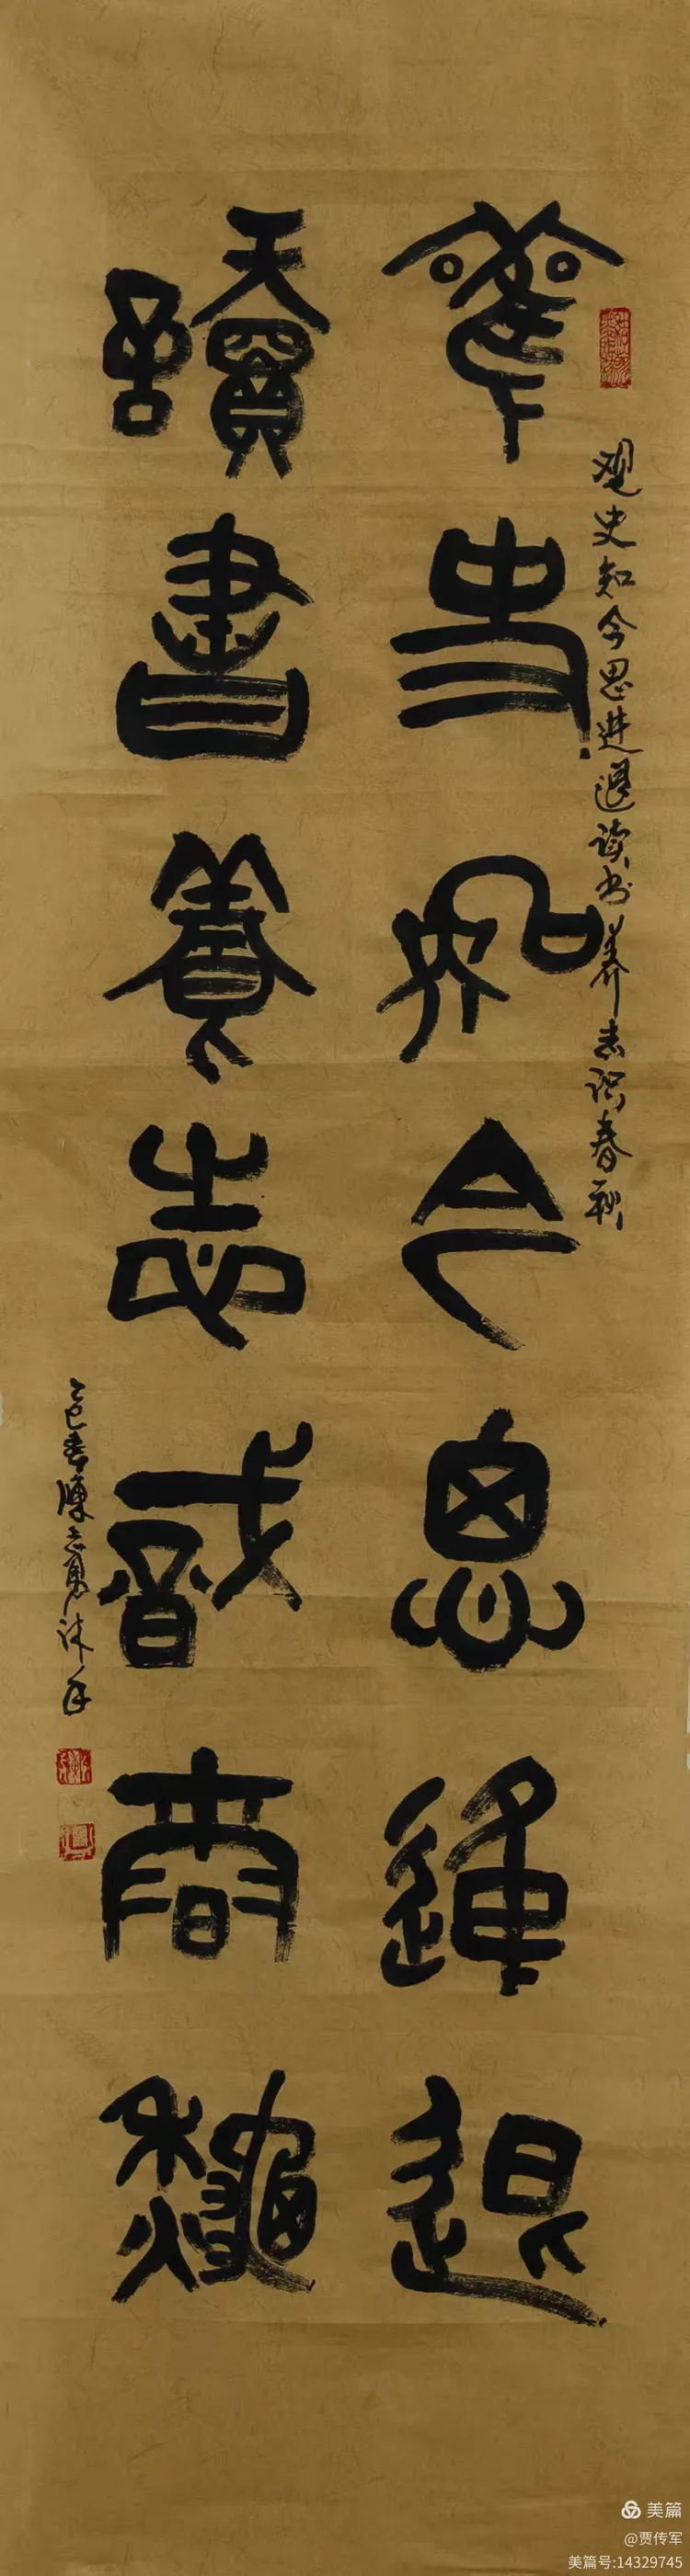 观史知今思进退读书养志识春秋
雚史知今思進退
讀書養志戠商龝
乙巳春陳志勇沐手
美篇
@贾传军
美篇号:14329745